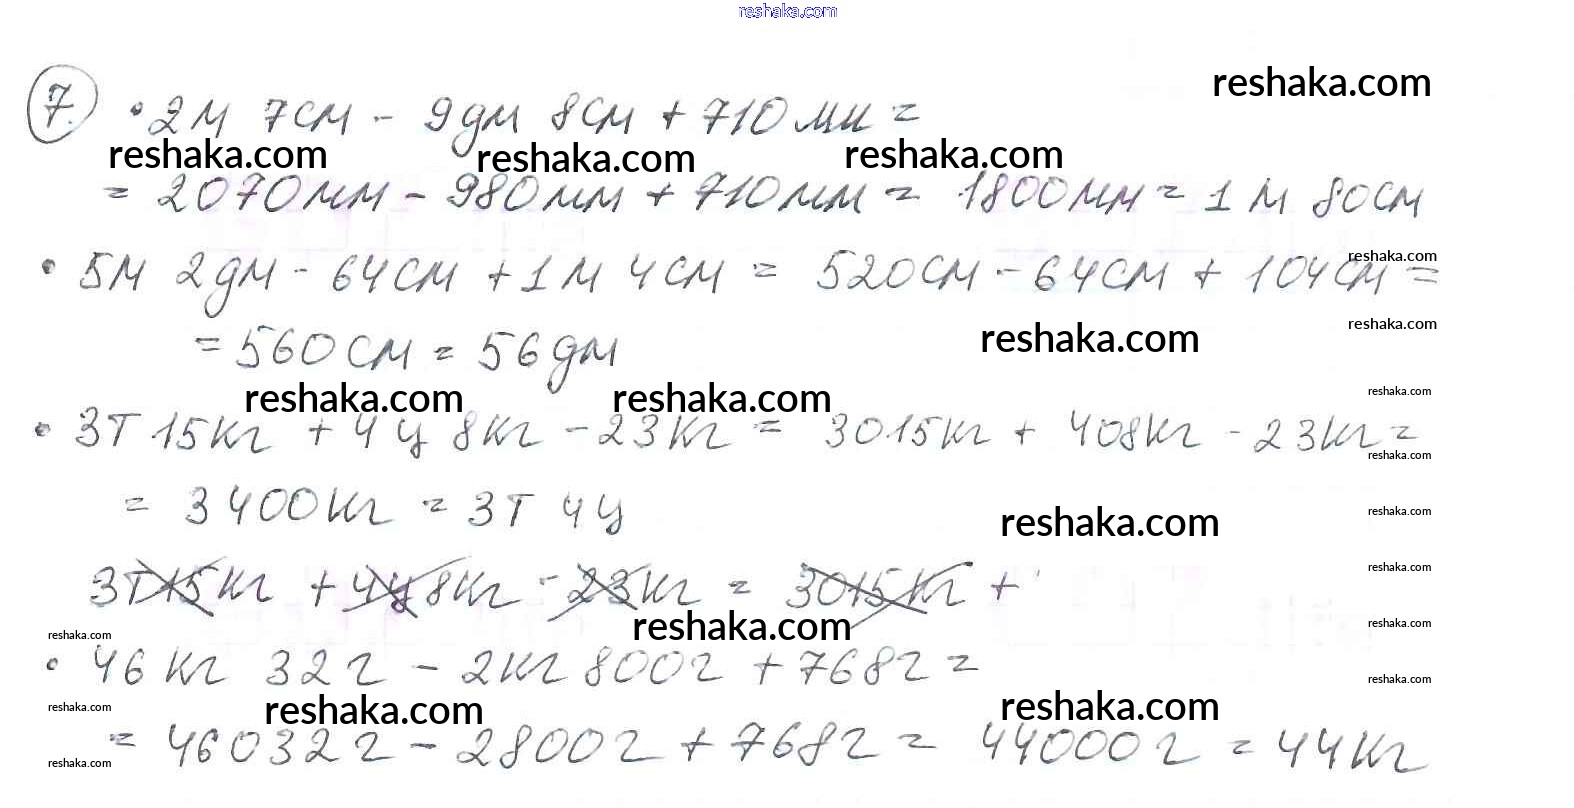 reshaka.com
reshaka.com
7. • 2м 7см - 9дм 8см + 710мм =
reshaka.com reshaka.com reshaka.com
= 2070мм - 980мм + 710мм = 1800мм = 1м 80см
reshaka.com
• 5м 2дм - 64см + 1м 4см = 520см - 64см + 104см =
reshaka.com
= 560см = 56дм reshaka.com
reshaka.com
reshaka.com reshaka.com
• 3т 15кг + 4ц 8кг - 23кг = 3015кг + 408кг - 23кг =
reshaka.com
= 3400кг = 3т 4ц
reshaka.com reshaka.com
3т 15кг + 4ц 8кг - 23кг = 3015кг +
reshaka.com
reshaka.com reshaka.com
reshaka.com
• 46кг 32г - 2кг 800г + 768г =
reshaka.com
reshaka.com reshaka.com reshaka.com
= 46032г - 2800г + 768г = 44000г = 44кг
reshaka.com